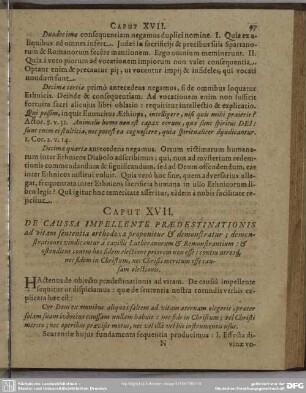 CAPUT XVII. 97
Duodecimo consequentiam negamus duplici nomine. I. Quia ex a-
liquibus ad omnes infert. Judei ta sacrificiis & precibus suis Spartano-
rum & Romanorum fecere mentionem. Ergo omnium meminerunt. II.
Quia à voto piorum ad vocationem impiorum non valet consequentia.
Optant enim & precantur pii, ut vocentur impii & infideles, qui vocati
nondum sunt.
Decimo tertio primò antecedens negamus, si de omnibus loquatur
Ethnicis. Deinde & consequentiam. Ad vocationem enim non sufficit
fortuita sacri alicujus libri oblatio: requiritur intellectio & explicatio.
Qui possim, inquit Eunuchus Æthiops, intelligere, nisi quis mihi præiverit?
Actor. 8. v. 31. Animalis homo non est capax eorum, quæ sunt spiritus DEI:
sunt enim ei stultitia, nec potest ea cognoscere, quia spiritualiter dijudicantur.
1. Cor. 2. v. 14.
Decimo quarto antecedens negamus. Ortum victimarum humana-
rum inter Ethnicos Diabolo adscribimus: qui, non ad
eam commonefaciendum & significandum, sed ad Deum offendendum, eas
inter Ethnicos institui voluit. Quia verò hoc sine, quem adversarius fingit,
frequentata inter Ethnicos sacrificia humana in ullo Ethnicorum li-
bro legit? Qui igitur hæc temeritate asseritur, eadem à nobis facilitate re-
picitur.
CAPUT XVII.
DE CAUSSA IMPELLENTE PRÆDESTINATIONIS
ad vitam sententia orthodoxa proponitur & demonstratur; demon-
strationes vindicantur à cavillis Lutheranorum & Remonstrantium: &
ostenditur contra hos fidem electione priorem non esse: contra utrosque,
nec fidem in Christum, nec Christi meritum esse cau-
sam electionis.
HActenus de objecto prædestinationis ad vitam. De causâ impellente
sequitur ut dispiciamus: quæ de sententia nostra contradis variis ex-
plicata hæc est:
Cur Deus ex omnibus aliquos saltem ad vitam æternam elegerit, præter
solum suum judicium causam nullam habuit: nec fide in Christum; vel Christi
merito; nec operibus præcise motus, nec vel istâ vel his instrumentis usus.
Sententiæ hujus fundamenta sequentia producimus: I. Effecta di-
N vinæ vo-